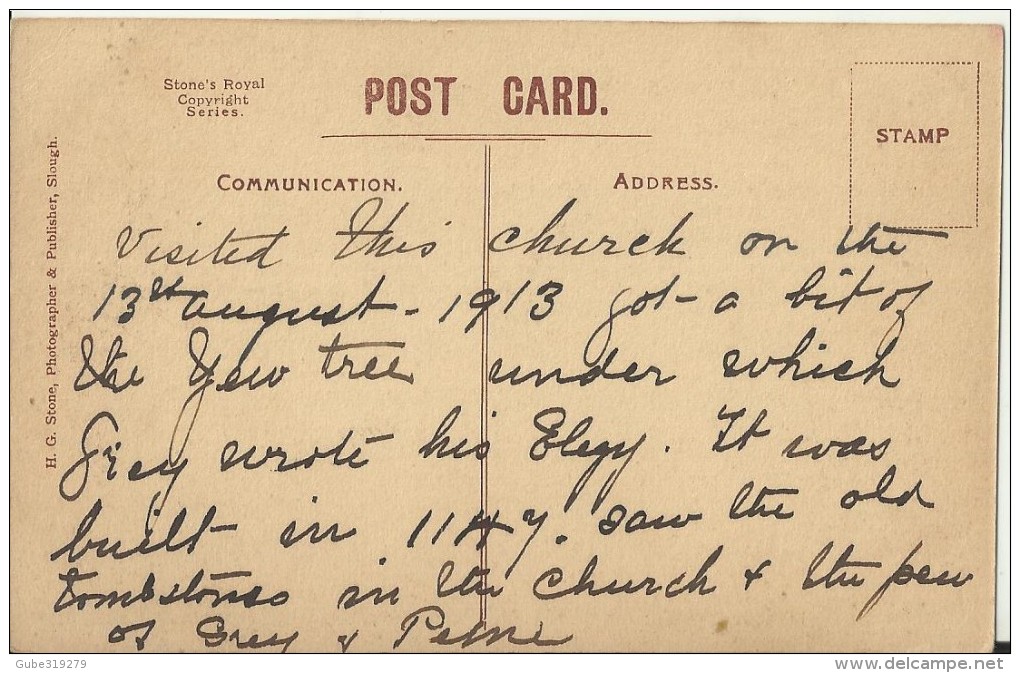 Stone's Royal
Copyright
Series.
POST CARD.
STAMP
H. G. Stone, Photographer & Publisher, Slough.
COMMUNICATION.
ADDRESS.
Visited this church on the
13th august - 1913 got a bit of
the Yew tree under which
Grey wrote his Elegy. It was
built in 1147. saw the old
tombstones in the church & the pew
of Grey &
Gube319279
www.delcampe.net